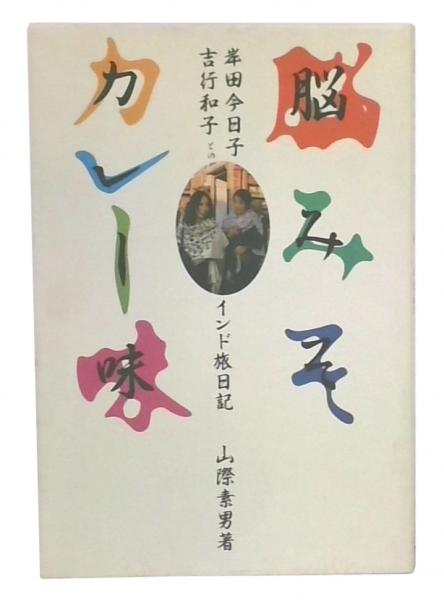 脳みそ
カレー味
岸田今日子
吉行和子との
インド旅日記
山際素男著